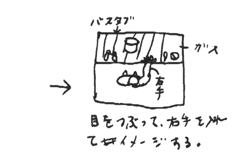 バスタブ
ガス
右手
目をつぶって、右手を入れ
てイメージする。